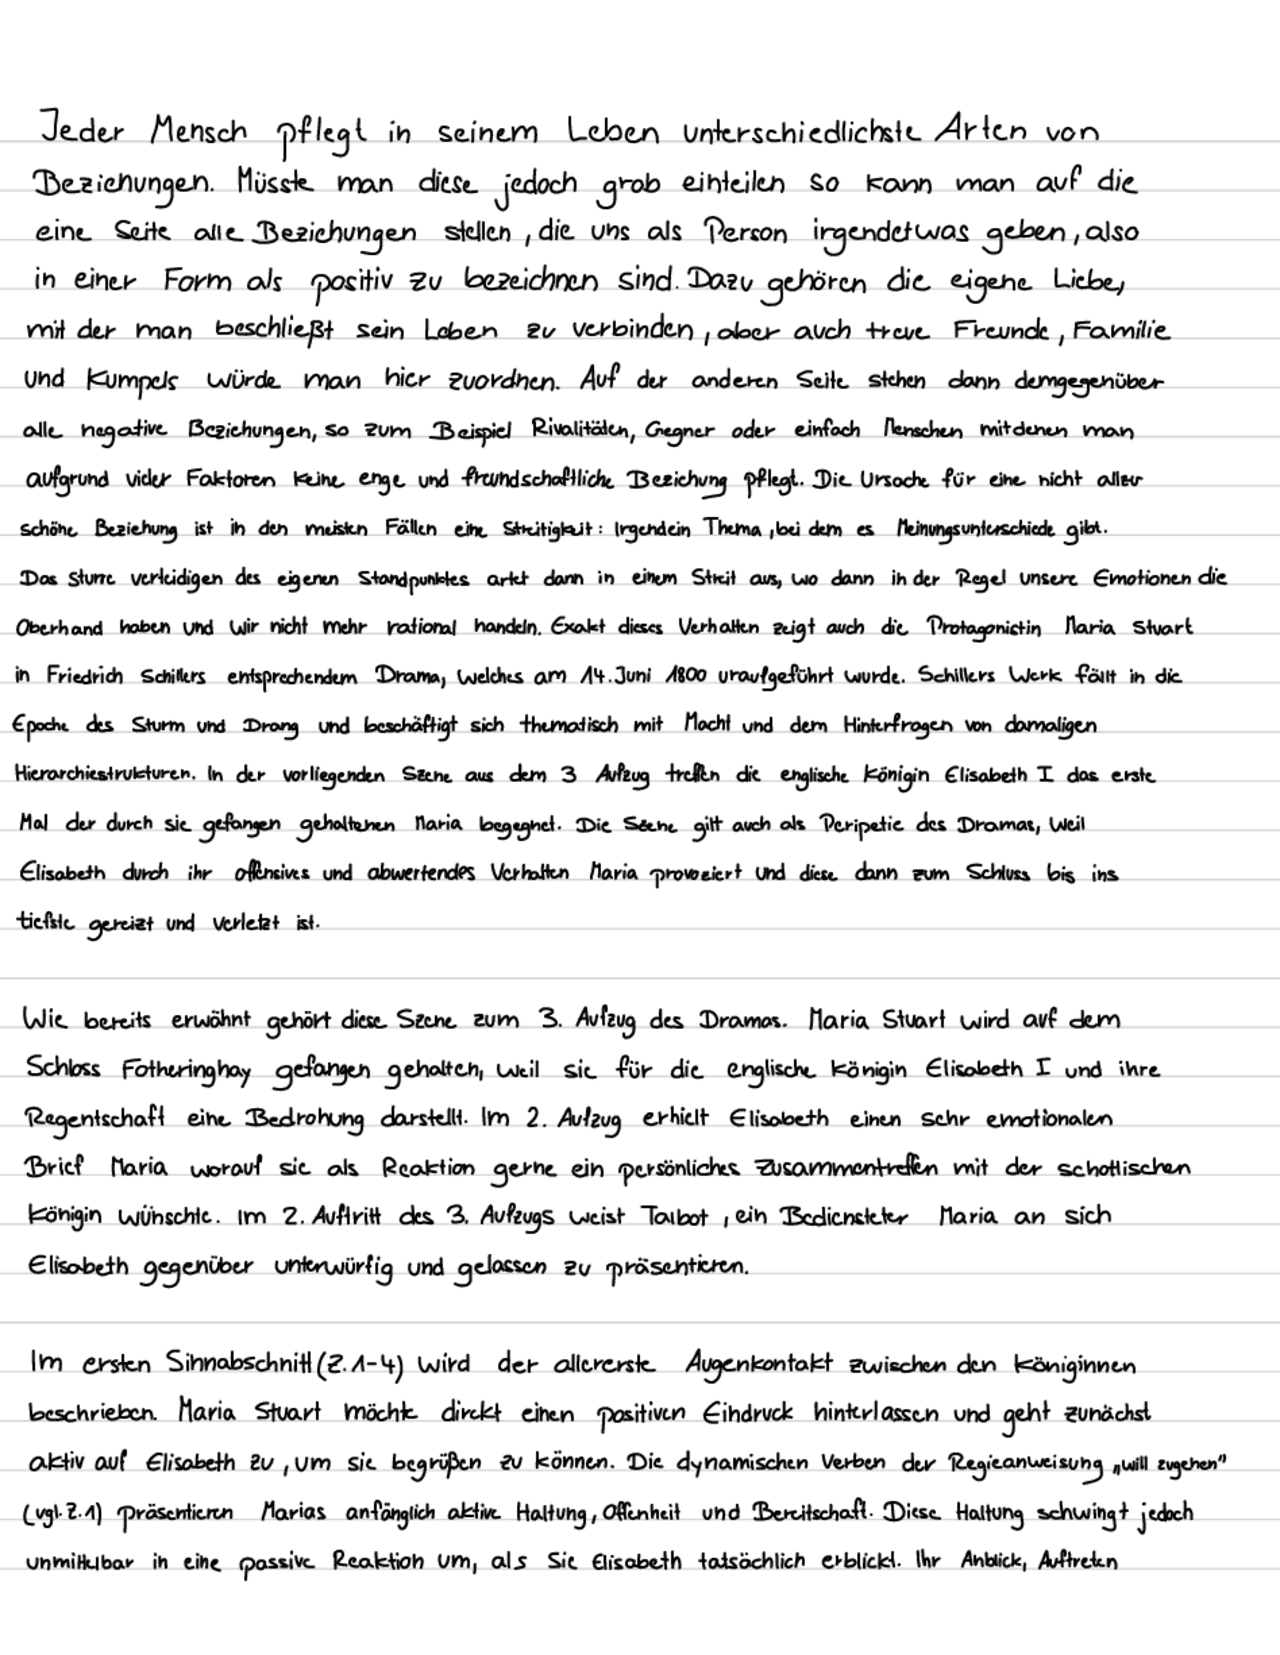 Jeder Mensch pflegt in seinem Leben unterschiedlichste Arten von
Beziehungen. Müsste man diese jedoch grob einteilen so kann man auf die
eine Seite alle Beziehungen stellen, die uns als Person irgendetwas geben, also
in einer Form als positiv zu bezeichnen sind. Dazu gehören die eigene Liebe,
mit der man beschließt sein Leben zu verbinden, aber auch treue Freunde, Familie
und Kumpels würde man hier zuordnen. Auf der anderen Seite stehen dann demgegenüber
alle negative Beziehungen, so zum Beispiel Rivalitäten, Gegner oder einfach Menschen mitdenen man
aufgrund vieler Faktoren keine enge und freundschaftliche Beziehung pflegt. Die Ursache für eine nicht allzu
schöne Beziehung ist in den meisten Fällen eine Streitigkeit: Irgendein Thema, bei dem es Meinungsunterschiede gibt.
Das sture verteidigen des eigenen Standpunktes artet dann in einem Streit aus, wo dann in der Regel unsere Emotionen die
Oberhand haben und wir nicht mehr rational handeln. Exakt dieses Verhalten zeigt auch die Protagonistin Maria Stuart
in Friedrich Schillers entsprechendem Drama, welches am 14. Juni 1800 uraufgeführt wurde. Schillers Werk fällt in die
Epoche des Sturm und Drang und beschäftigt sich thematisch mit Macht und dem Hinterfragen von damaligen
Hierarchiestrukturen. In der vorliegenden Szene aus dem 3 Aufzug treffen die englische Königin Elisabeth I das erste
Mal der durch sie gefangen gehaltenen Maria begegnet. Die Szene gilt auch als Peripetie des Dramas, weil
Elisabeth durch ihr offensives und abwertendes Verhalten Maria provoziert und diese dann zum Schluss bis ins
tiefste gereizt und verletzt ist.
Wie bereits erwähnt gehört diese Szene zum 3. Aufzug des Dramas. Maria Stuart wird auf dem
Schloss Fotheringhay gefangen gehalten, weil sie für die englische Königin Elisabeth I und ihre
Regentschaft eine Bedrohung darstellt. Im 2. Aufzug erhielt Elisabeth einen sehr emotionalen
Brief Maria worauf sie als Reaktion gerne ein persönliches Zusammentreffen mit der schottischen
Königin wünschte. Im 2. Auftritt des 3. Aufzugs weist Talbot, ein Bediensteter Maria an sich
Elisabeth gegenüber unterwürfig und gelassen zu präsentieren.
Im ersten Sinnabschnitt (Z. 1-4) wird der allererste Augenkontakt zwischen den Königinnen
beschrieben. Maria Stuart möchte direkt einen positiven Eindruck hinterlassen und geht zunächst
aktiv auf Elisabeth zu, um sie begrüßen zu können. Die dynamischen Verben der Regieanweisung „will zugehen"
(vgl. Z. 1) präsentieren Marias anfänglich aktive Haltung, Offenheit und Bereitschaft. Diese Haltung schwingt jedoch
unmittelbar in eine passive Reaktion um, als Sie Elisabeth tatsächlich erblickt. Ihr Anblick, Auftreten